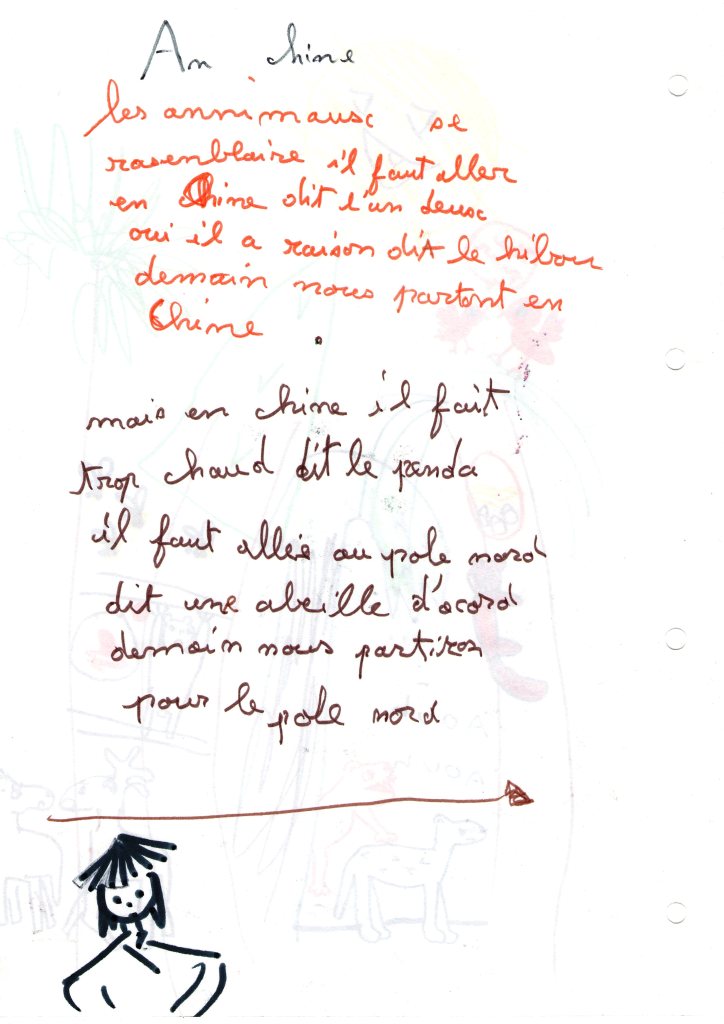 An chine
les annimausc se
rasenblaire il faut aller
en Chine dit l'un deusc
oui il a raison dit le hibou
demain nous partont en
Chine .
mais en chine il fait
trop chaud dit le panda
il faut allée au pole nord
dit une abeille d'acord
demain nous partiron
pour le pole nord